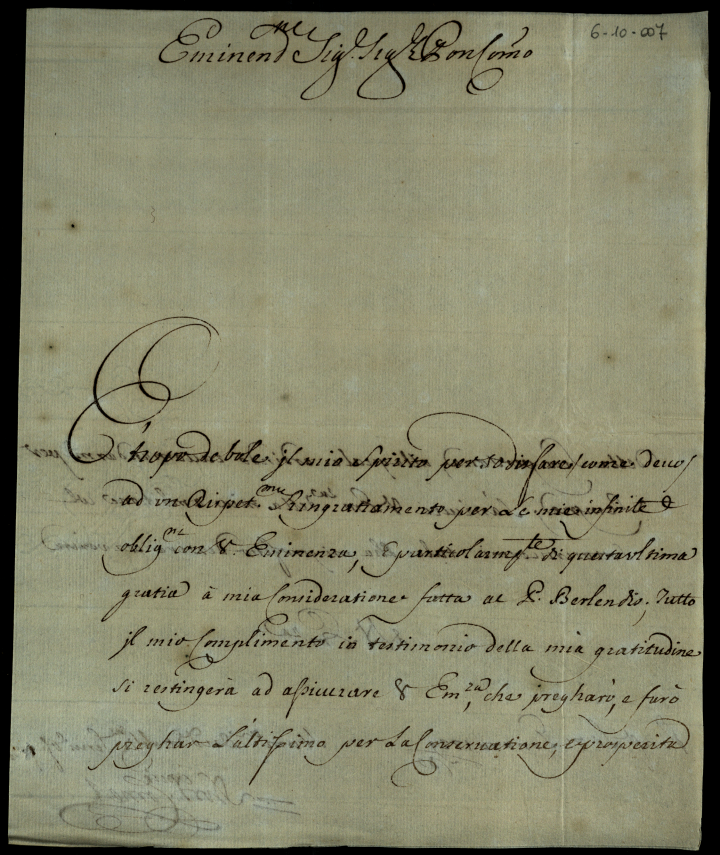 6-10-007
Eminend.me Sig.r Sig.r Pron Com̃o
È tropo debole jl mio spirito per sodisfare come deuo
ad un Rispet.mo Ringratiamento per le mie infinite
oblig.ni con V. Eminenza, e particolarm.te di questa vltima
gratia à mia Consideratione fatta al P. Berlendis; Tutto
jl mio Complimento in testimonio della mia gratitudine
si restingerà ad assicurare V. Em.za, che pregharò, e farò
preghar L'altissimo per La Conseruatione, e prosperità